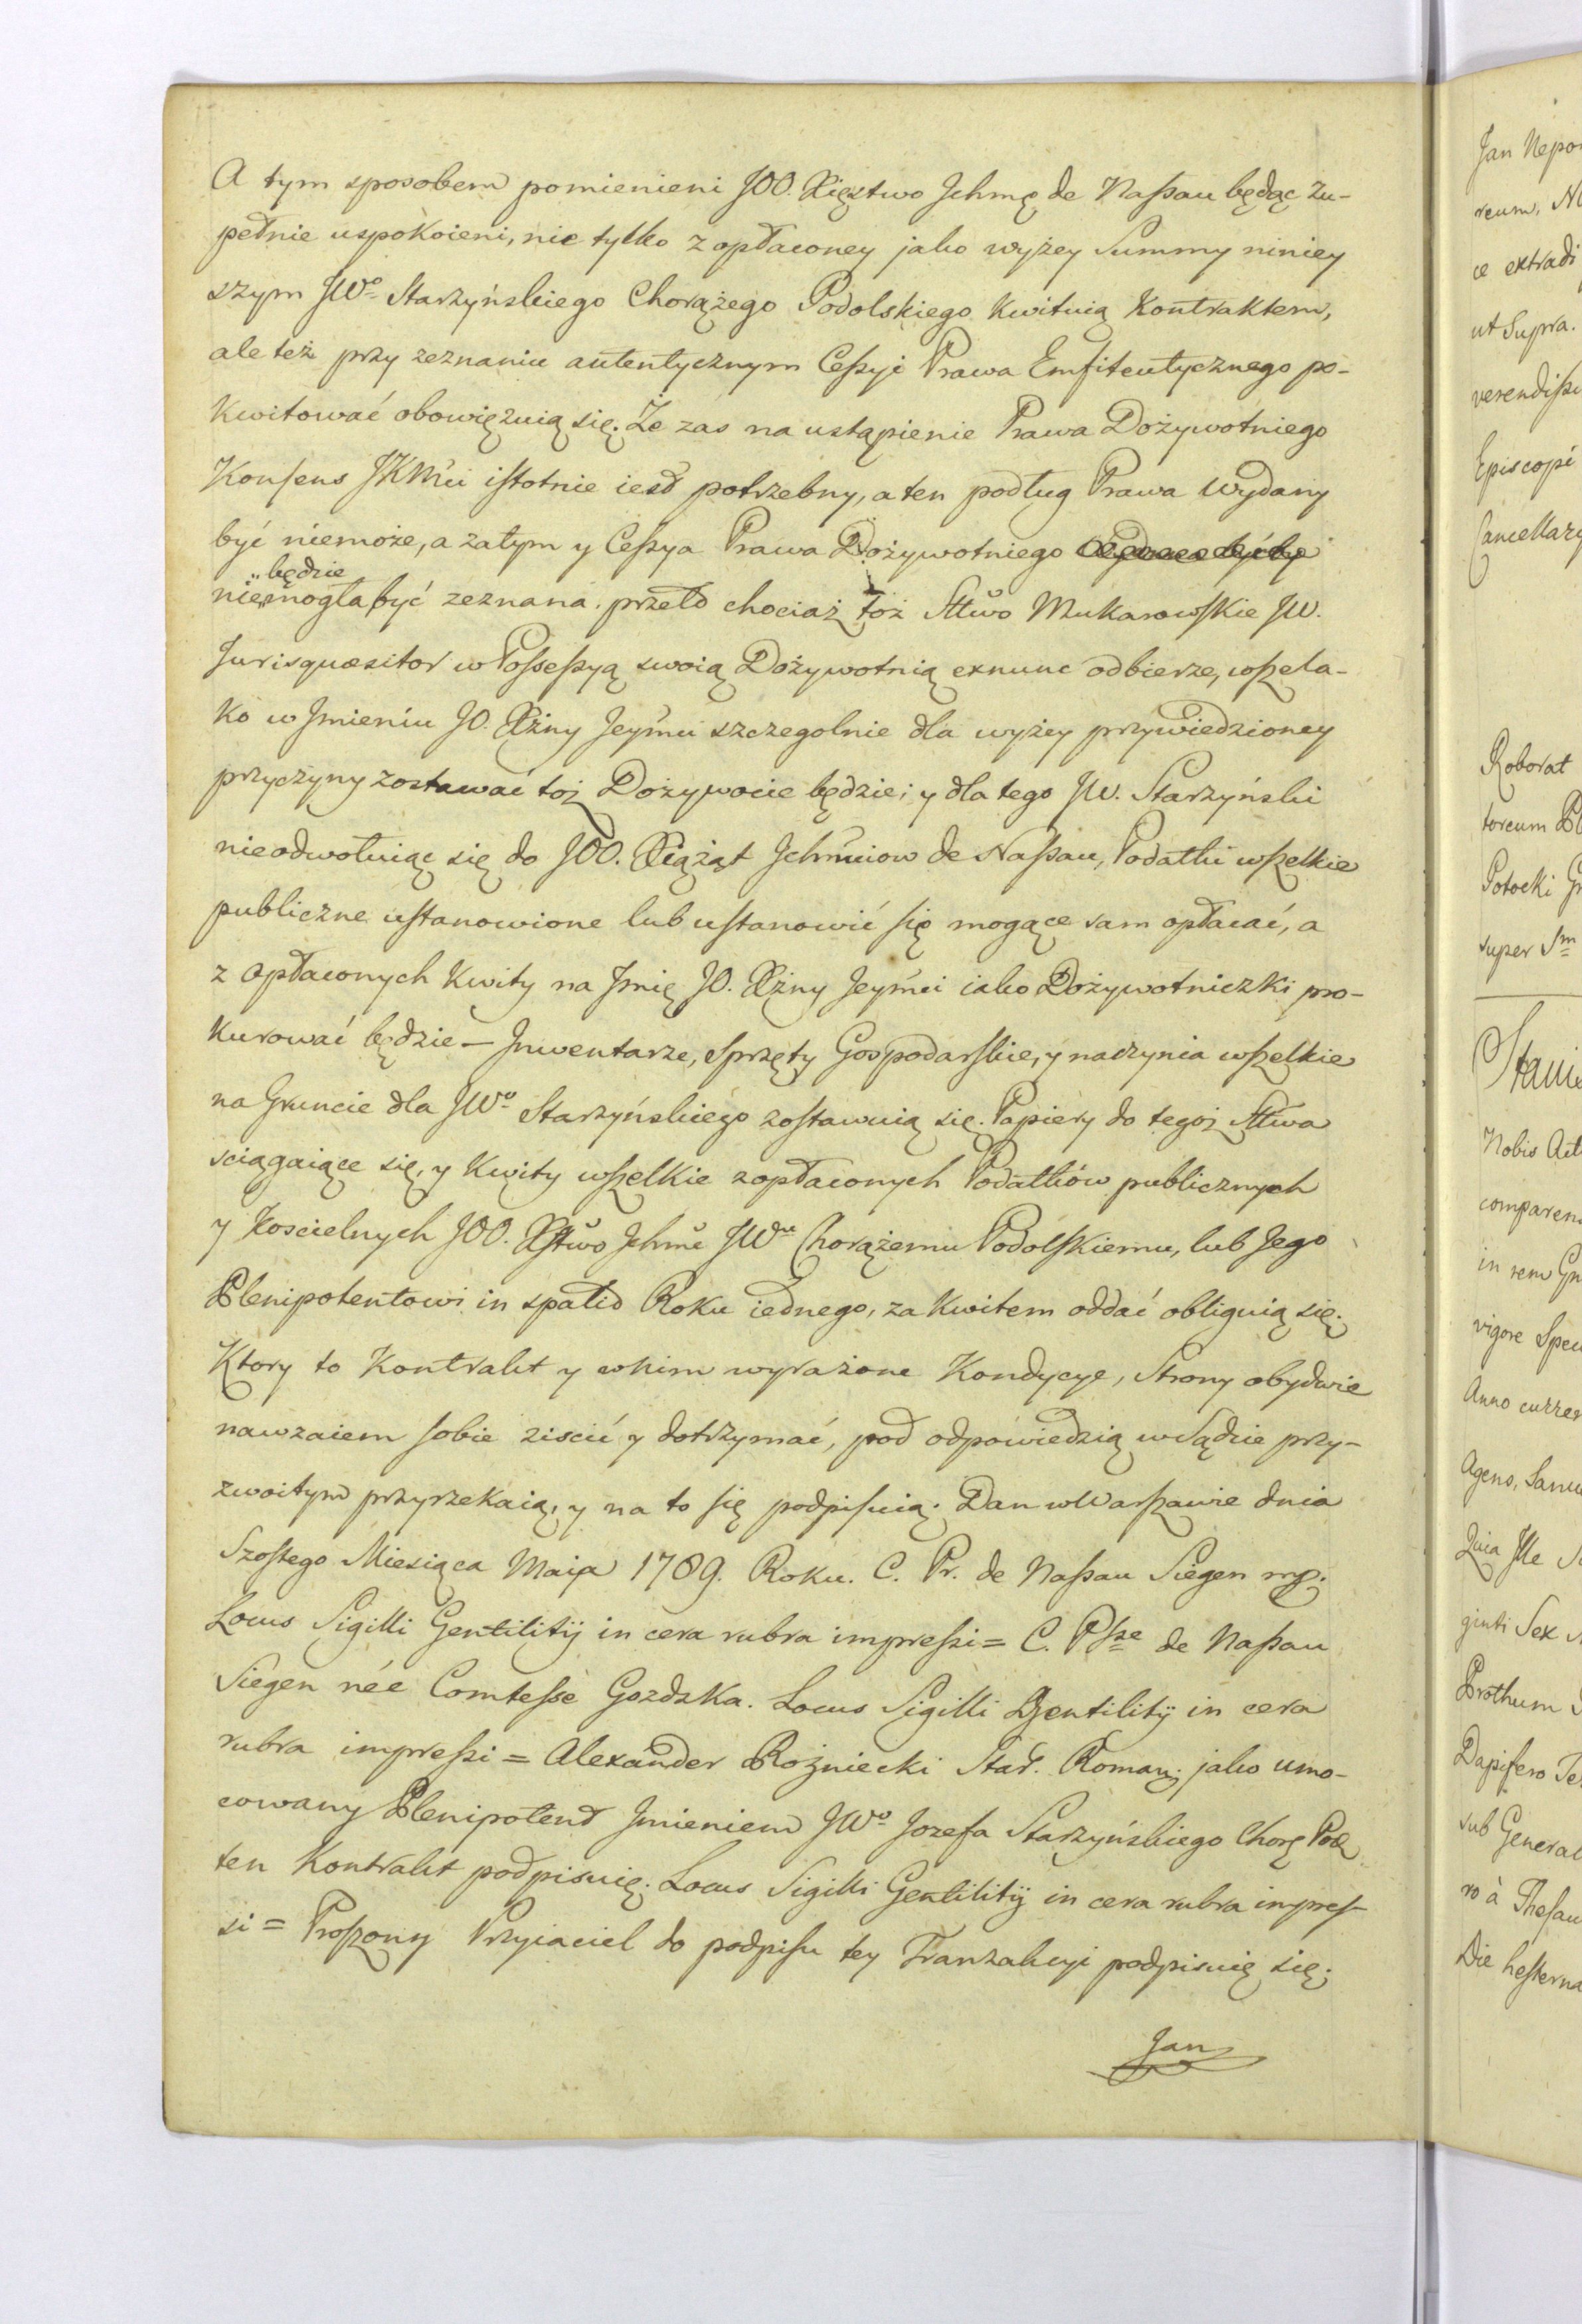 A tym sposobem pomienieni JOO. Xięztwo Ichmę de Naßau będąc zu-
pełnie uspokoieni, nie tylko z opłaconey jako wyżey Summy niniey
szym JWo Starzyńskiego Chorążego Podolskiego kwituią Kontraktem,
ale też przy zeznaniu autentycznym Ceßyi Prawa Emfiteutycznego po-
kwitować obowięzuią się. Że zas na ustąpienie Prawa Dożywotniego
Konsens JKMći istotnie iest potrzebny, a ten podług Prawa wydany
być niemoże, a zatym y Ceßya Prawa Dożywotniego
będzie
niemogła być zeznana. przeto chociaż toż Sttwo Mukarowskie JW.
Jurisquæsitor w Posseßyą swoią Dożywotnią exnunc odbierze, wszela-
ko w Jmieniu JO. Xżny Jeymći szczegolnie dla wyżey przywiedzioney
przyczyny zostawać toż Dożywocie będzie; y dla tego JW. Starzyński
nieodwołuiąc się do JOO. Xiążąt Ichmćiow de Naßau, Podatki wszelkie
publiczne ustanowione lub ustanowić się mogące sam opłacać, a
z opłaconych Kwity na Jmię JO. Xżny Jeymći iako Dożywotniczki pro-
kurować będzie — Jnwentarze, Sprzęty Gospodarskie, y naczynia wszelkie
na Gruncie dla JWo Starzyńskiego zostawuią się. Papiery do tegoż Sttwa
sciągaiące się, y Kwity wszelkie z opłaconych Podatków publicznych
y Koscielnych JOO. Xsttwo Ichmć JWmu Chorążemu Podolskiemu, lub Jego
Plenipotentowi in spatio Roku iednego, za Kwitem oddać obliguią się.
Ktory to Kontrakt y w nim wyrażone Kondycye, Strony obydwie
nawzaiem sobie ziscić y dotrzymać, pod odpowiedzią w Sądzie przy-
zwoitym przyrzekaią, y na to się podpisuią. Dan w Warszawie dnia
Szostego Miesiąca Maja 1789. Roku. C. Pr. de Naßau Siegen mp.
Locus Sigilli Gentilitij in cera rubra impreßi = C. Psse de Naßau
Siegen née Comtesse Gozdzka. Locus Sigilli Gentilitij in cera
rubra impreßi = Alexander Rożniecki Star. Roman. jako umo-
cowany Plenipotent Jmieniem JWo Jozefa Starzyńskiego Chorą Podo
ten Kontrakt podpisuię. Locus Sigilli Gentilitij in cera rubra impres-
si = Proszony Przyiaciel do podpisu tey Tranzakcyi podpisuię się.
Jan
Jan Nepo
reum,
ce extradi
ut Supra.
verendiß
Episcopi
Cancellary
Roborat
toreum
Potocki
super Sm
Stani
Nobis Act
comparen
in rem
vigore Spec
Anno curren
Ageno, Samu
Quia Ille
ginti Sex
Prothum
Dapifero Ter
sub General
ro à Thesau
Die hesterna